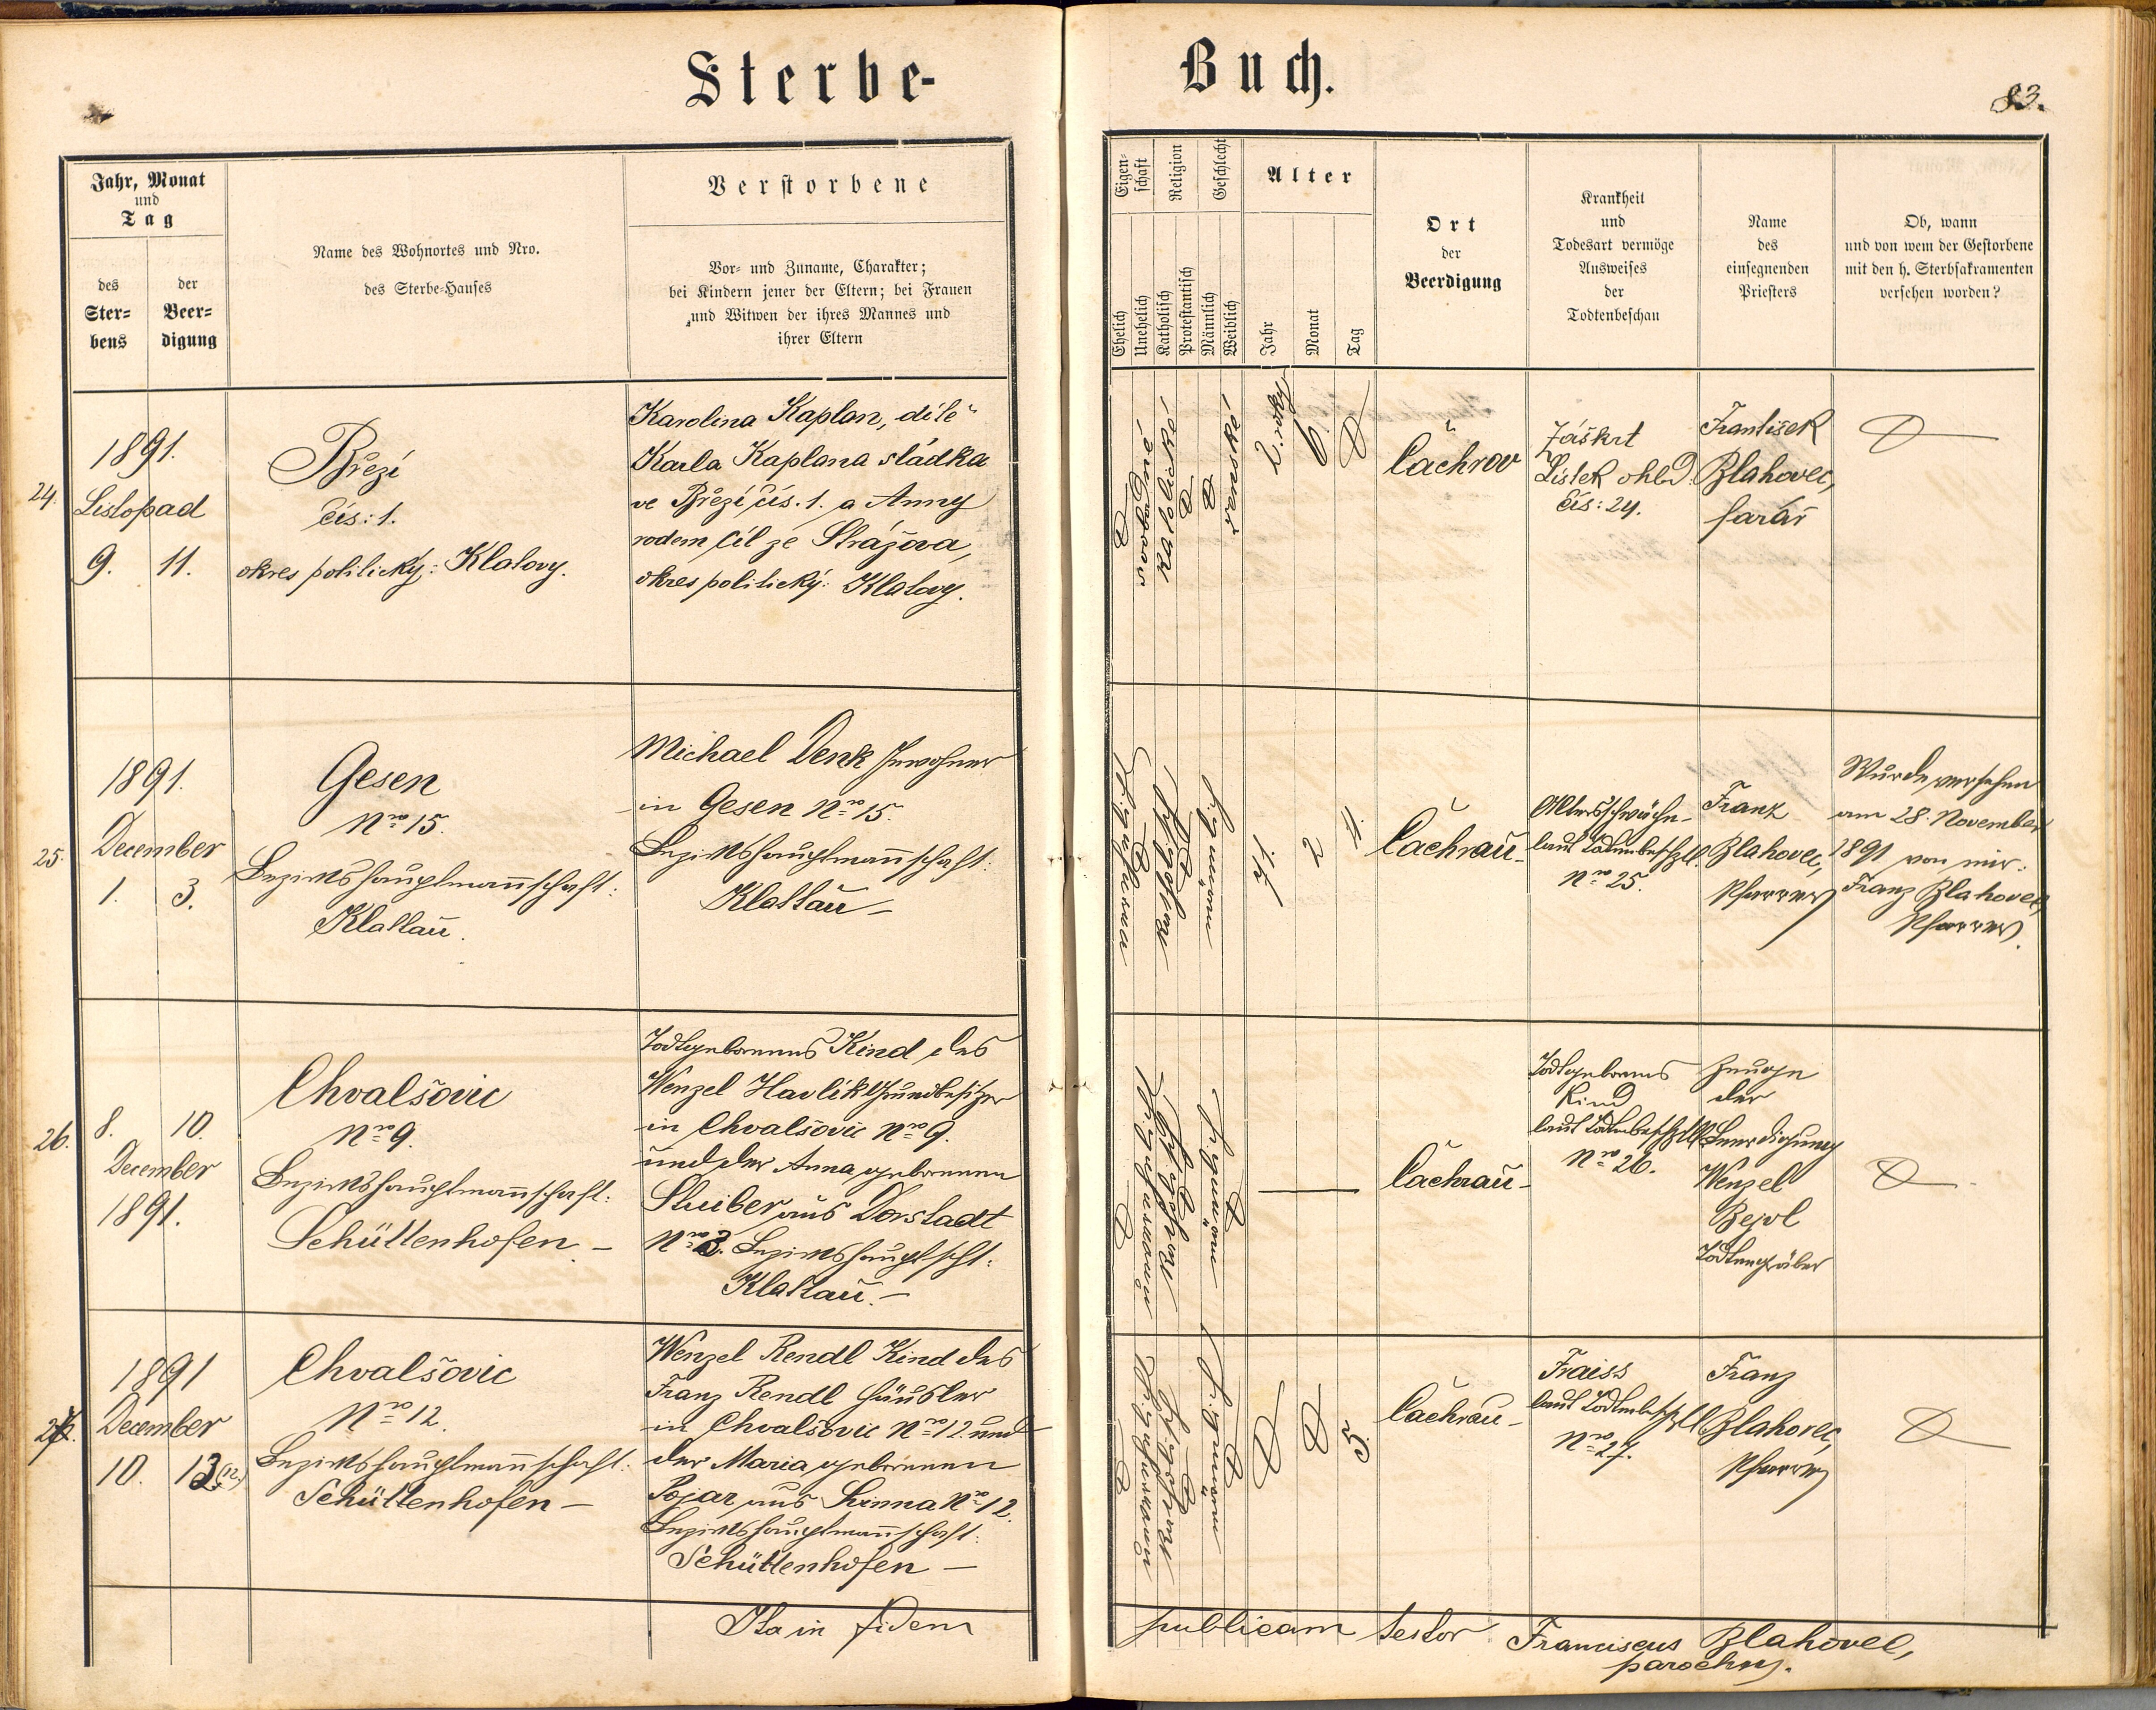 Sterbe-
Buch.
83.
Jahr, Monat
und
Tag
des
Ster-
bens
der
Beer-
digung
Name des Wohnortes und Nro.
des Sterbe-Hauses
Verstorbene
Vor- und Zuname, Charakter;
bei Kindern jener der Eltern; bei Frauen
und Witwen der ihres Mannes und
ihrer Eltern
Eigen-
schaft
Religion
Geschlecht
Alter
Ehelich
Unehelich
Katholisch
Protestantisch
Männlich
Weiblich
Jahr
Monat
Tag
Ort
der
Beerdigung
Krankheit
und
Todesart vermöge
Ausweises
der
Todtenbeschau
Name
des
einsegnenden
Priesters
Ob, wann
und von wem der Gestorbene
mit den h. Sterbsakramenten
versehen worden?
24.
1891.
Listopad
9. 11.
Březí
čís: 1.
okres politický: Klatovy.
Karolina Kaplan, dítě
Karla Kaplana sládka
ve Březí čís. 1. a Anny
rodem Cíl ze Strážova,
okres politický: Klatovy.
katolické
ženské
2. roky
6
Čachrov
Záškrt
Lístek ohled.
čís: 24.
František
Blahovec,
farář
25.
1891.
December
1. 3.
Gesen
Nro 15.
Bezirkshauptmannschaft:
Klattau.
Michael Denk Inwohner
in Gesen Nro 15.
Bezirkshauptmannschaft:
Klattau –
2
Čachrau –
Altersschwäche
laut Todtenbeschzttl.
Nro 25.
Franz
Blahovec,
Pfarrer
Wurde versehen
am 28. November
1891 von mir:
Franz Blahovec,
Pfarrer.
26.
8. 10.
December
1891.
Chvalšovic
Nro 9.
Bezirkshauptmannschaft:
Schüttenhofen –
Todtgeborenes Kind des
Wenzel Havlik Grundbesitzer
in Chvalšovic Nro 9.
und der Anna geborenen
Stuiber aus Dorstadt
Nro 3. Bezirkshauptscht:
Klattau. –
Čachrau –
Todtgeborenes
Kind
laut Todtenbeschzttl
Nro 26.
Zeuge
der
Beerdigung
Wenzel
Bejvl
Todtengräber
27.
1891
December
10. 12. (12.)
Chvalšovic
Nro 12.
Bezirkshauptmannschaft:
Schüttenhofen –
Wenzel Rendl Kind des
Franz Rendl Häusler
in Chvalšovic Nro 12 und
der Maria geborenen
Pojar aus Sinna Nro 12.
Bezirkshauptmannschaft:
Schüttenhofen –
5.
Čachrau –
Fraiss
laut Todtenbeschzttl
Nro 27.
Franz
Blahovec,
Pfarrer
Ita in fidem publicam testor Franciscus Blahovec,
parochus.